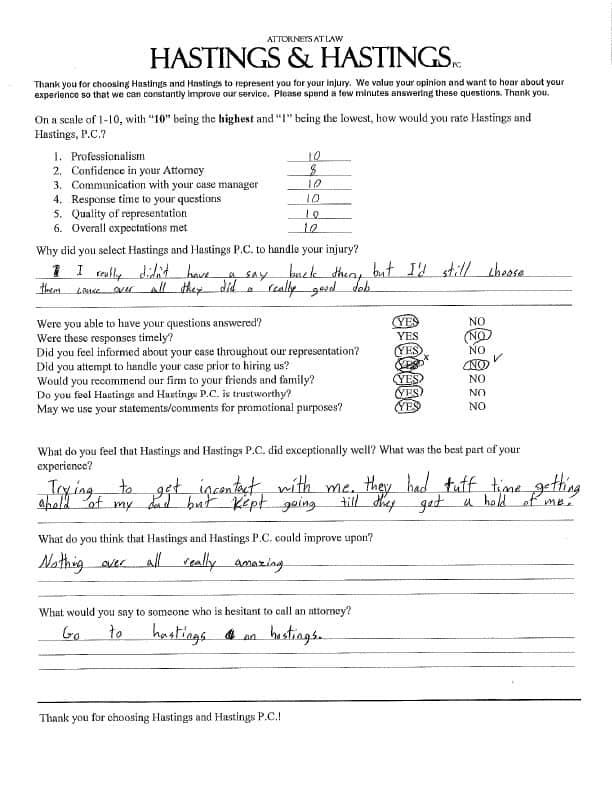 ATTORNEYS AT LAW
HASTINGS & HASTINGS PC
Thank you for choosing Hastings and Hastings to represent you for your injury. We value your opinion and want to hear about your
experience so that we can constantly improve our service. Please spend a few minutes answering these questions. Thank you.
On a scale of 1-10, with "10" being the highest and "1" being the lowest, how would you rate Hastings and
Hastings, P.C.?
1. Professionalism 10
2. Confidence in your Attorney 8
3. Communication with your case manager 10
4. Response time to your questions 10
5. Quality of representation 10
6. Overall expectations met 10
Why did you select Hastings and Hastings P.C. to handle your injury?
I really didn't have a say back then, but I'd still choose
them cause over all they did a really good dob
Were you able to have your questions answered? YES NO
Were these responses timely? YES NO
Did you feel informed about your case throughout our representation? YES NO
Did you attempt to handle your case prior to hiring us? YES x NO ✓
Would you recommend our firm to your friends and family? YES NO
Do you feel Hastings and Hastings P.C. is trustworthy? YES NO
May we use your statements/comments for promotional purposes? YES NO
What do you feel that Hastings and Hastings P.C. did exceptionally well? What was the best part of your
experience?
Trying to get incontact with me. they had tuff time getting
ahold of my dad but kept going till they got a hold of me.
What do you think that Hastings and Hastings P.C. could improve upon?
Nothig over all really amazing
What would you say to someone who is hesitant to call an attorney?
Go to hastings an hastings.
Thank you for choosing Hastings and Hastings P.C.!